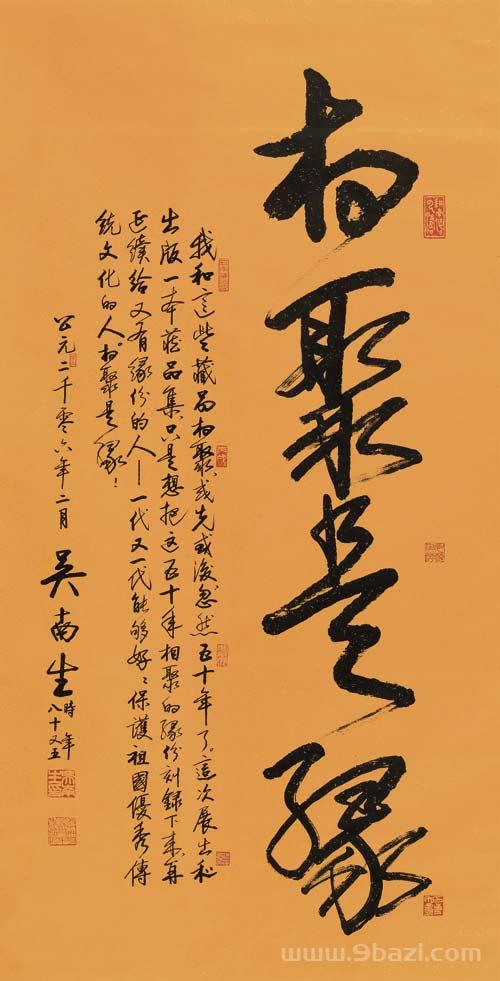 相聚是緣
我和這些藏品相聚或先或後忽然五十年了。這次展出和
出版一本藏品集只是想把这五十年相聚的緣份刻錄下來再
延續給又有緣份的人——一代又一代能够好好保護祖國優秀傳
統文化的人相聚是緣！
公元二千零六年二月
吴南生
時年
八十又五
www.9bazi.com